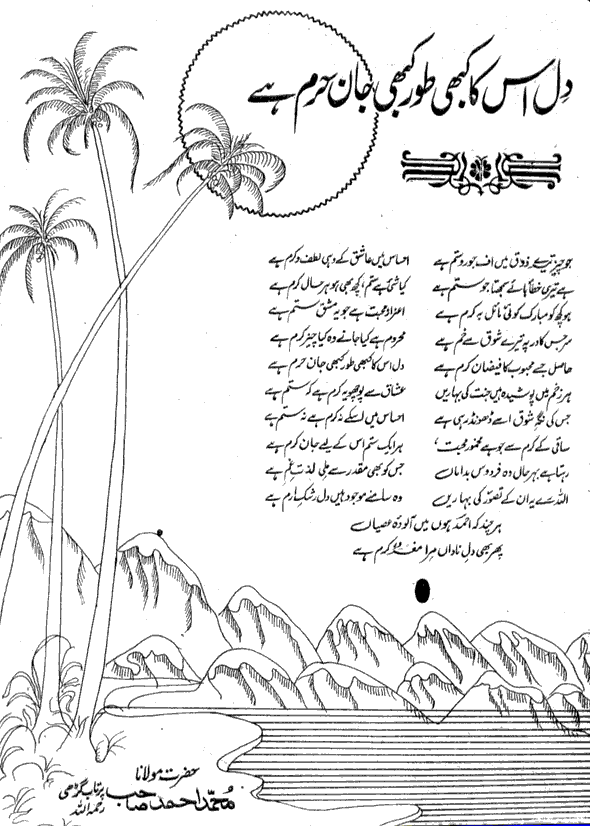 دل اس کا کبھی طور کبھی جان حرم ہے
جو چیز تیرے ذوق میں اف جور و ستم ہے احساس میں عاشق کے وہی لطف و کرم ہے
ہے تیری خطا ہائے سمجھتا جو ستم ہے کیا شئی ہے ستم، کچھ بھی ہو ہر حال کرم ہے
ہو تجھ کو مبارک کوئی مائل بہ کرم ہے اعزاز محبت ہے جو یہ مشق ستم ہے
سر جس کا در پہ تیرے شوق سے خم ہے محروم ہے کیا جانے وہ کیا چیز کرم ہے
حاصل جسے محبوب کا فیضان کرم ہے دل اس کا کبھی طور کبھی جان حرم ہے
ہر زخم میں پوشیدہ ہیں جنت کی بہاریں عشاق سے پوچھو یہ کرم ہے کہ ستم ہے
جس کی نگہِ شوق اسے ڈھونڈ رہی ہے احساس میں اسکے نہ کرم ہے نہ ستم ہے
ساقی کے کرم سے جو ہے مخمور محبت، ہر ایک ستم اس کے لیے جان کرم ہے
رہتا ہے بہر حال وہ فردوس بداماں جس کو بھی مقدر سے ملی لذت غم ہے
اللہ رے یہ ان کے تصور کی بہاریں وہ سامنے موجود ہیں دل رشک ارم ہے
ہر چند کہ احمد ہوں میں آلودہ عصیاں
پھر بھی دلِ ناداں مرا مغرور کرم ہے
حضرت مولانا
محمد احمد صاحب پرتاب گڑھی
رحمہ اللہ